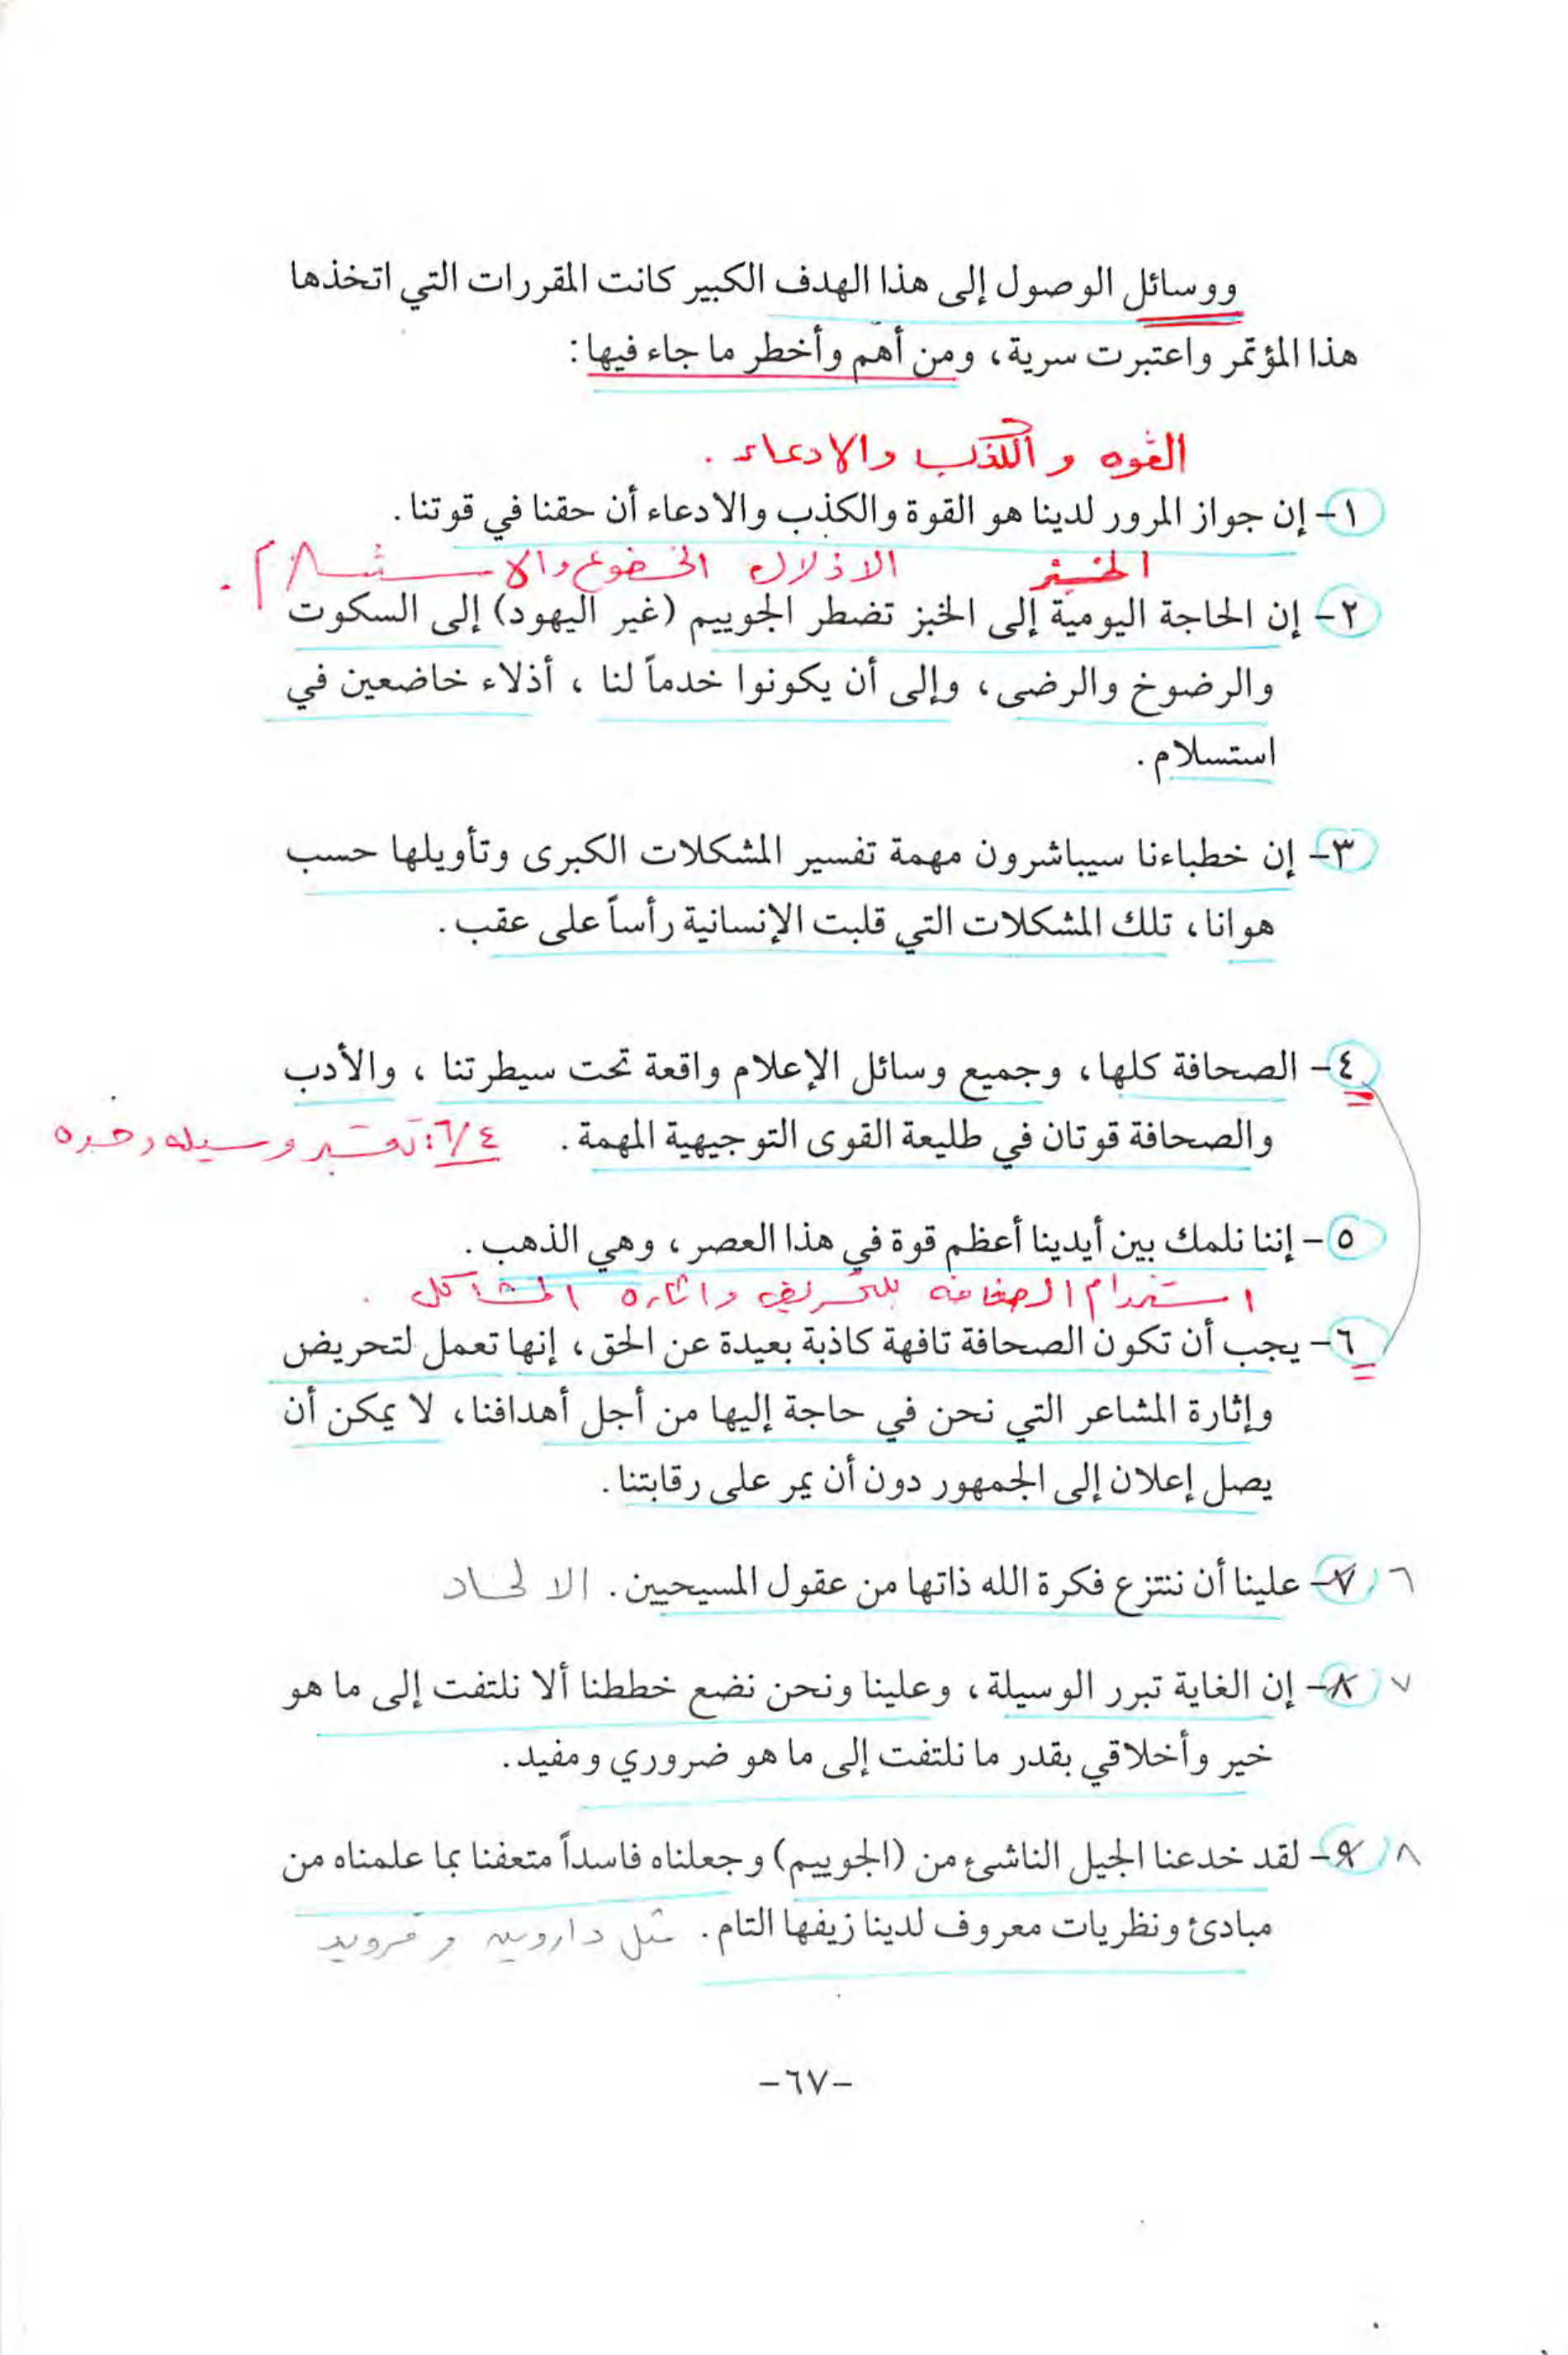 ووسائل الوصول إلى هذا الهدف الكبير كانت المقررات التي اتخذها
هذا المؤتمر واعتبرت سرية، ومن أهم وأخطر ما جاء فيها:
القوه و الكذب والادعاء .
١- إن جواز المرور لدينا هو القوة والكذب والادعاء أن حقنا في قوتنا.
الخبز الاذلال الخضوع والاستسلام .
٢- إن الحاجة اليومية إلى الخبز تضطر الجوييم (غير اليهود) إلى السكوت
والرضوخ والرضى، وإلى أن يكونوا خدماً لنا ، أذلاء خاضعين في
استسلام .
٣- إن خطباءنا سيباشرون مهمة تفسير المشكلات الكبرى وتأويلها حسب
هوانا، تلك المشكلات التي قلبت الإنسانية رأساً على عقب.
٤- الصحافة كلها، وجميع وسائل الإعلام واقعة تحت سيطرتنا ، والأدب
والصحافة قوتان في طليعة القوى التوجيهية المهمة. ٦/٤: تعتبر وسيله وحده
٥- إننا نلمك بين أيدينا أعظم قوة في هذا العصر، وهي الذهب.
استخدام الصحافه للتحريض واثاره المشاكل .
٦- يجب أن تكون الصحافة تافهة كاذبة بعيدة عن الحق، إنها تعمل لتحريض
وإثارة المشاعر التي نحن في حاجة إليها من أجل أهدافنا، لا يمكن أن
يصل إعلان إلى الجمهور دون أن يمر على رقابتنا.
٦ ٧- علينا أن ننتزع فكرة الله ذاتها من عقول المسيحيين. الالحاد
٧ ٨- إن الغاية تبرر الوسيلة، وعلينا ونحن نضع خططنا ألا نلتفت إلى ما هو
خير وأخلاقي بقدر ما نلتفت إلى ما هو ضروري ومفيد.
٨ ٩- لقد خدعنا الجيل الناشئ من (الجوييم) وجعلناه فاسداً متعفنا بما علمناه من
مبادئ ونظريات معروف لدينا زيفها التام. مثل داروين و فرويد
-٦٧-